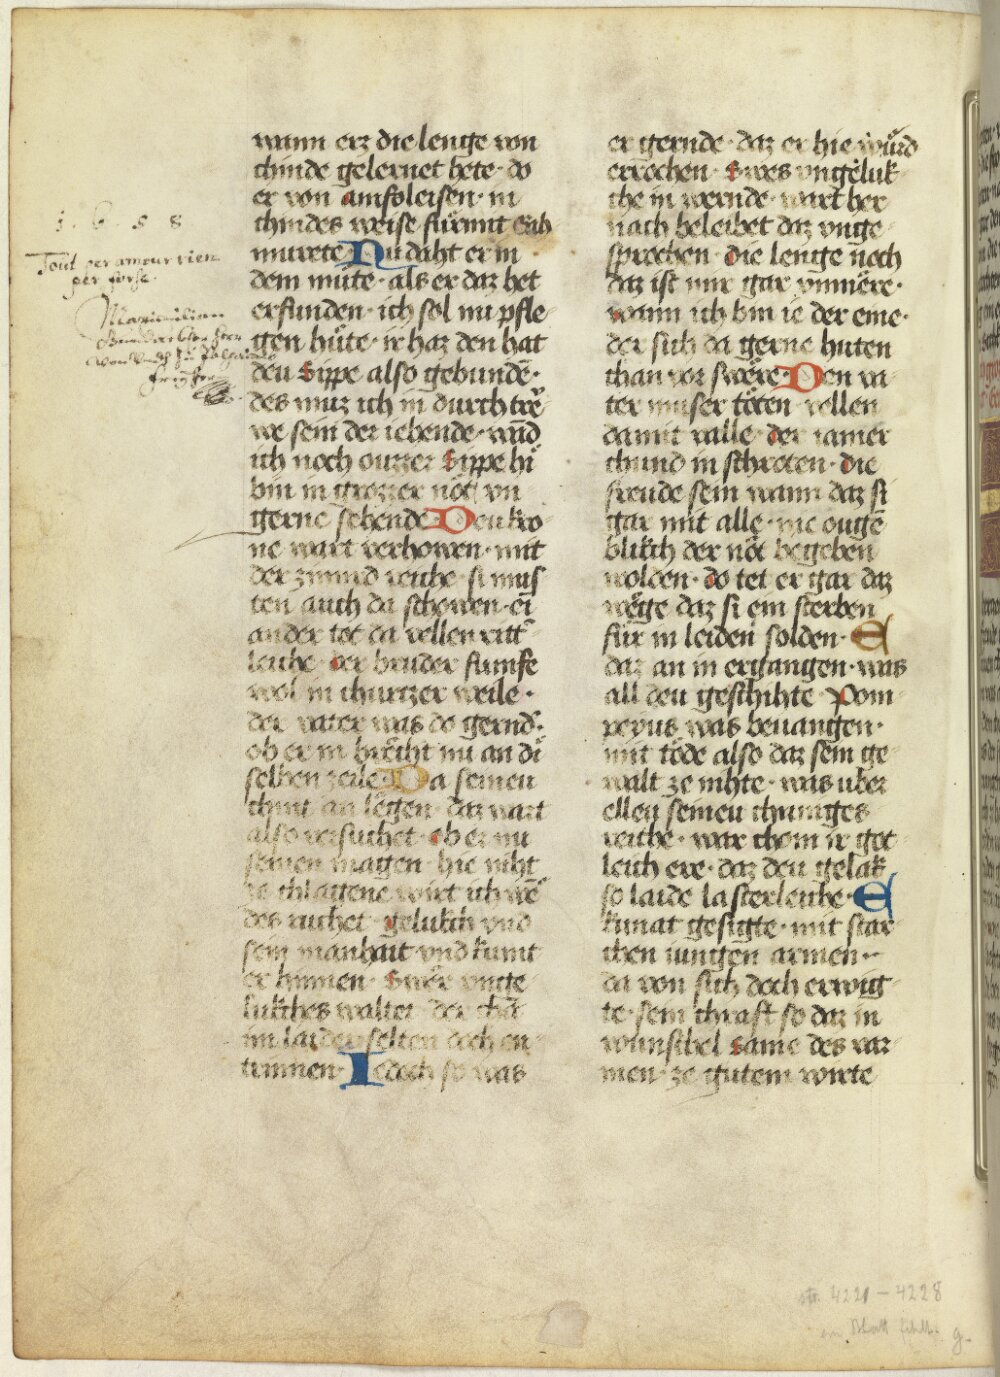 1 6 5 8
Tout per amour rien
per forse
Maximilian
wann erz die lenge von
chinde gelernet hete · do
er von amfoleisen · in
chindes weise fürnnt
murete Nu daht er in
dem mute · als er daz het
erfunden · ich sol nu pfle-
gen hüte · ir haz den hat
deu sippe also gebunde ·
des muz ich in durch tre-
we sein der iehende · und
ich noch ouzzer sippe hi
bin in grozzer not vn
gerne sehende · Deu kro-
ne wart verhowen · mit
der zimird reiche · si mus-
ten auch da schowen · ei
ander tot da vellen ritt-
leiche · der bruder funfe
wol in churtzer weile ·
der vater was do gernd ·
ob er in bræcht nu an di
selben zeile · Da seineu
chint an legen · daz wart
also versuchet · ob er nu
seinen magen · hie niht
ze chlagene wurt ich wē
des ruchet · gelukch vnd
sein manhait vnd kumt
er hinnen · swer vnge-
lukches waltet · der chā
im laider selten doch en-
trinnen · Iedoch so was
er gernde · daz er hie würd
errochen · swes vngeluk-
che in wernde · wart her
nach beleibet daz vnge-
sprochen · die lenge noch
daz ist mir gar vnmere ·
wann ich bin ie der eine ·
der sich da gerne huten
chan vor swere · Den va-
ter mit ser töten · vellen
damit valle · der iamer
chund in schroten · die
freude sein wann daz si
gar mit alle · nie ougē
blikch der not begeben
wolden · do tet er gar daz
wege daz si ein sterben
für in leiden solden · E
daz an in ergangen · was
all deu geschihte Pom-
peyus was beuangen ·
mit tode also daz sein ge-
walt ze nihte · was uber
elleu seineu chuniges
reiche · war chom ir got-
leich ere · daz deu gelak
so laide lasterleiche · E
kunat gesigte · mit star-
chen iungen armen ·
da von sich doch erwig-
te · sein chraft so daz in
wunschel same des var-
men · ze gutem wirte
str. 4221 – 4228
ein Blatt fehlt. g.